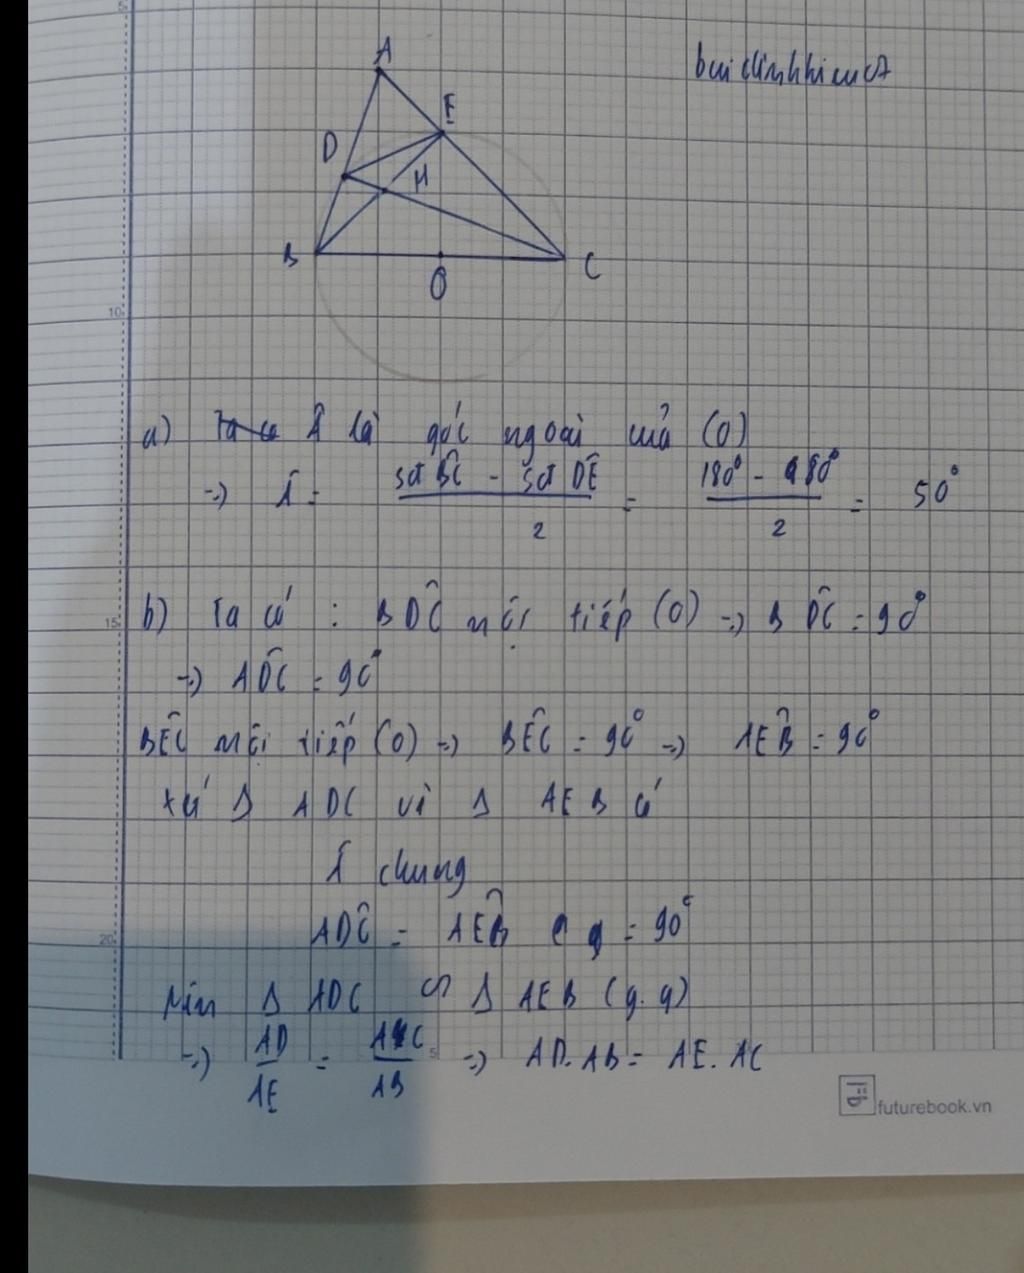 A
E
D
H
B
C
O
10
a) Ta có Â là góc ngoài của (O)
=> Â = sđ BC - sđ DE / 2 = 180° - 80° / 2 = 50°
15
b) Ta có : BDC nội tiếp (O) => BDC = 90°
=> ADC = 90°
BEC nội tiếp (O) => BEC = 90° => AEB = 90°
xét Δ ADC và Δ AEB có
Â chung
ADC = AEB = 90°
20
Nên Δ ADC ∽ Δ AEB (g.g)
=> AD / AE = AC / AB => AD. AB = AE. AC
5
futurebook.vn